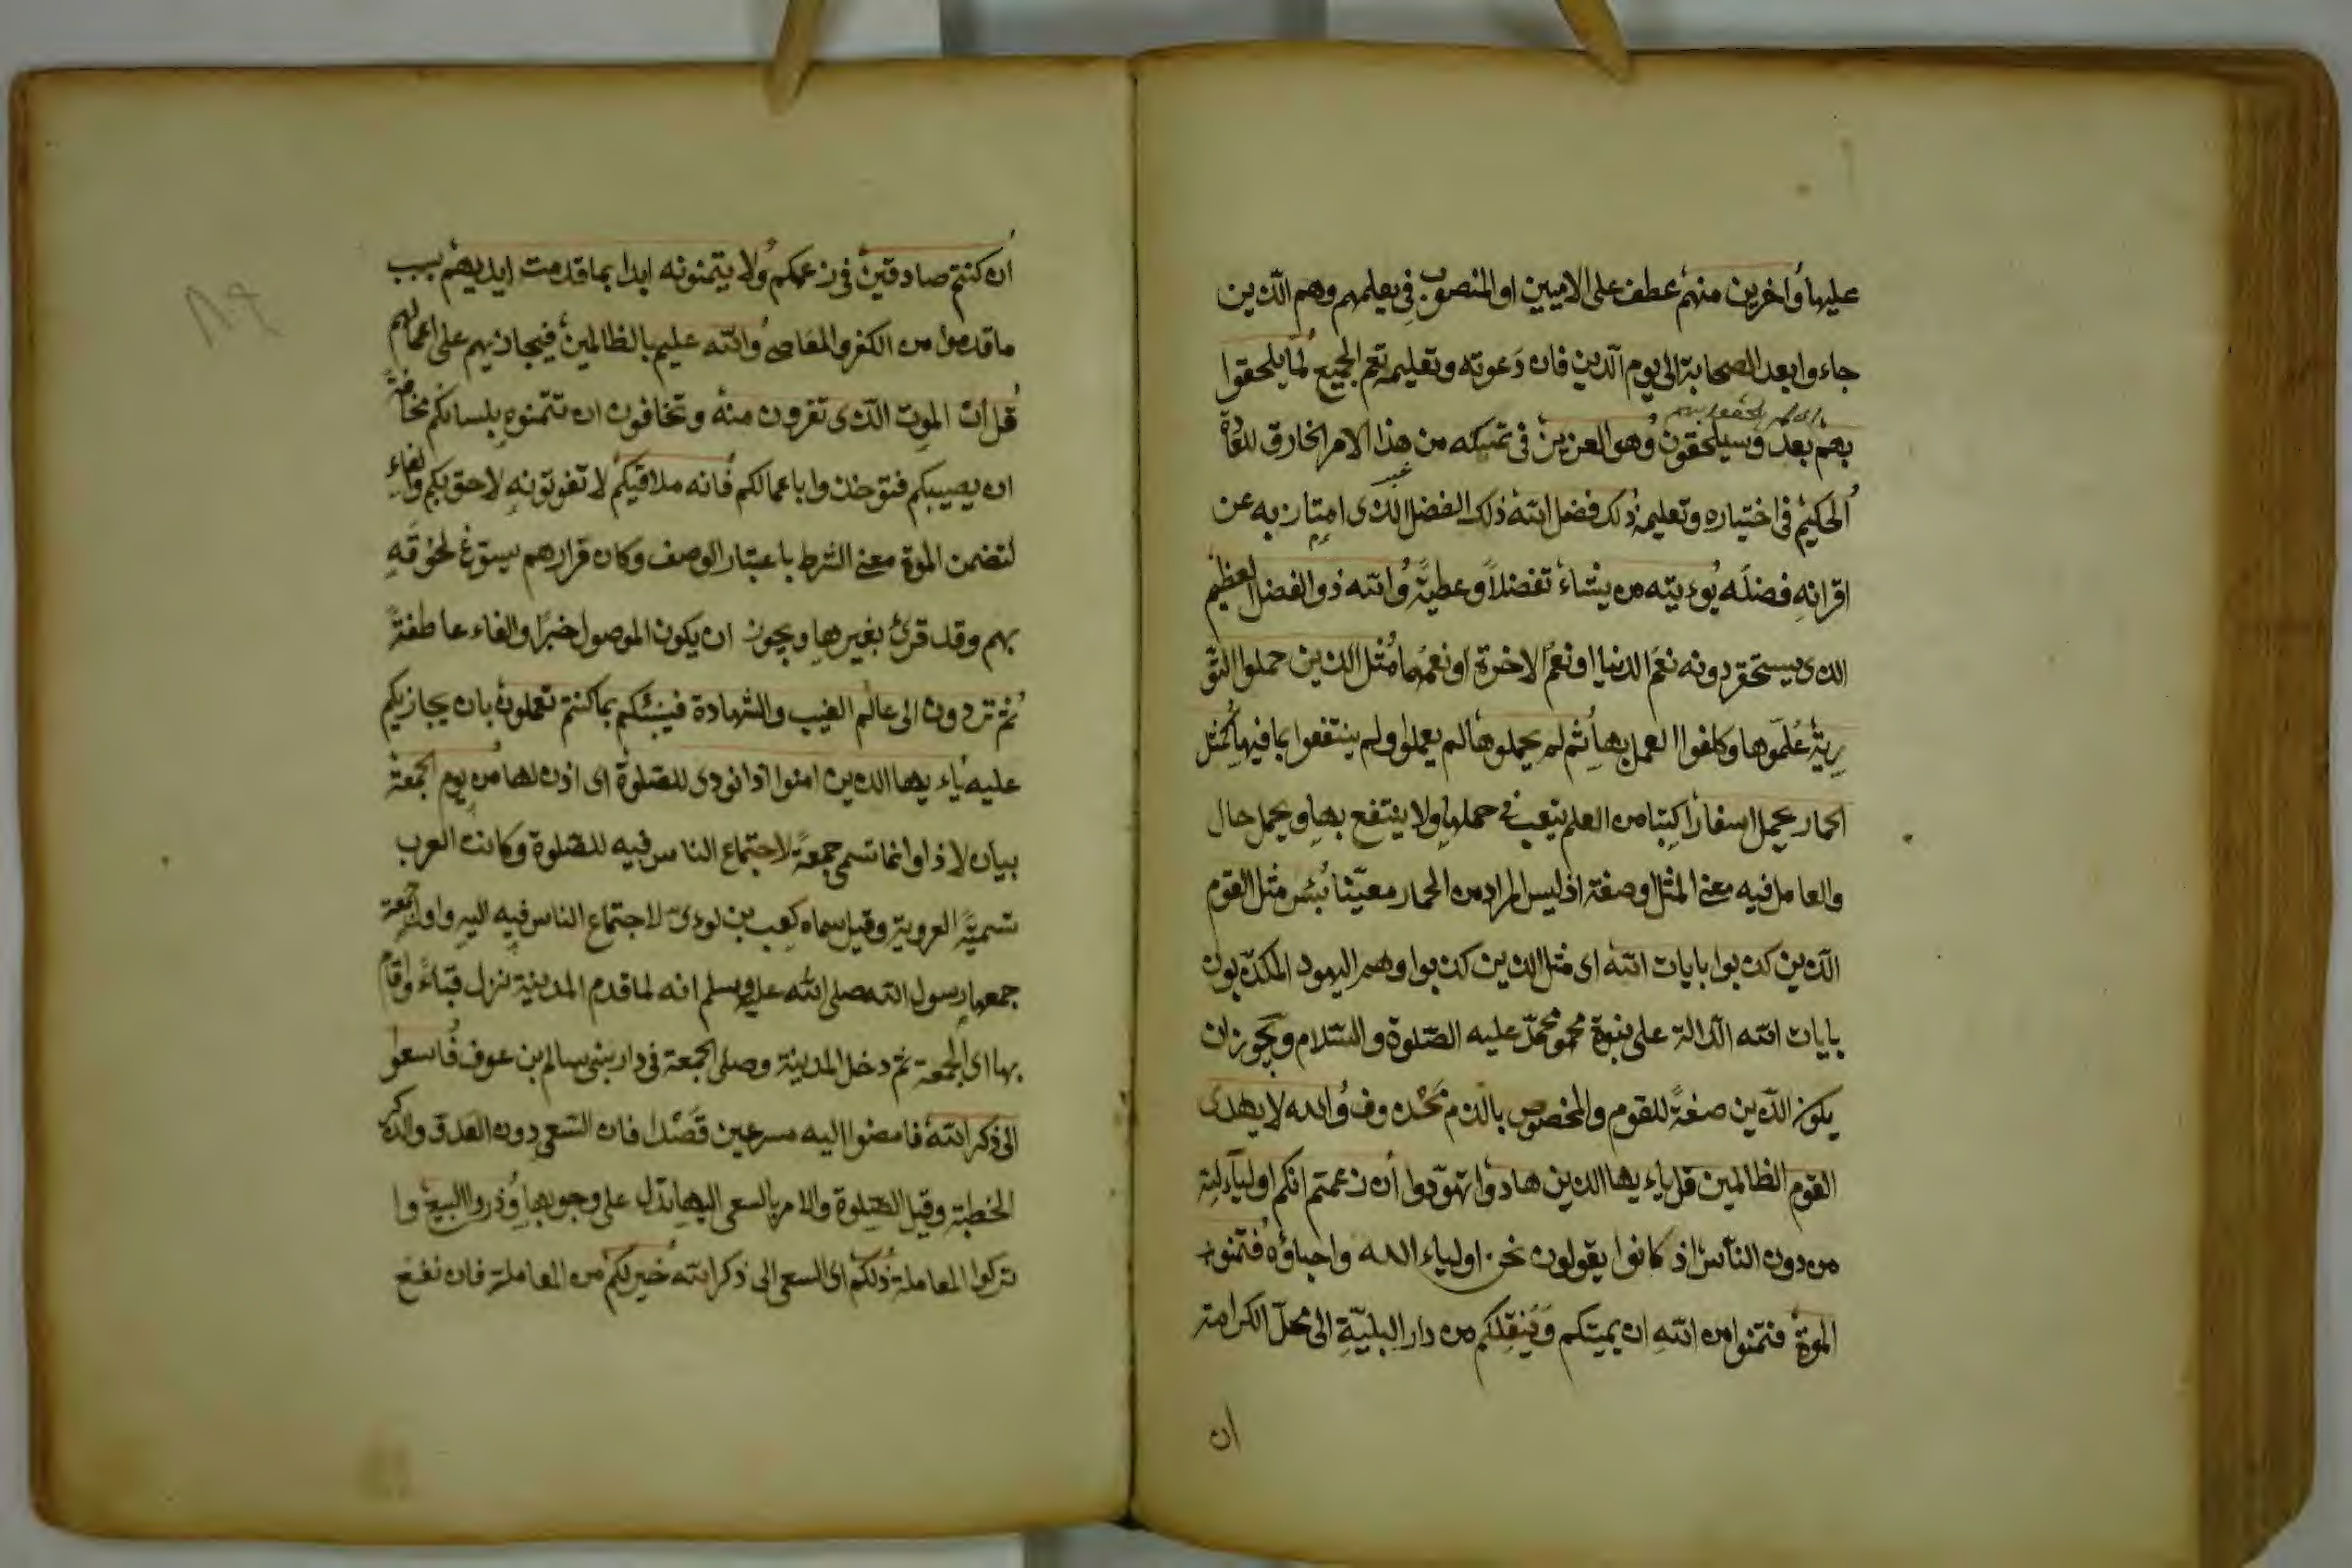 عليها وآخرين منهم عطف على الاميين او المنصوب فى يعلمهم وهم الذين
جاءوا بعد الصحابة الى يوم الدين فان دعوته وتعليمه تعم الجميع لما يلحقوا
لم يلحقوا بهم
بهم بعد وسيلحقون وهو العزيز فى تمكينه من هذا الامر الخارق للعادة
الحكيم فى اختياره وتعليمه ذلك فضل الله ذلك الفضل الذى امتاز به عن
اقرانه فضله يؤتيه من يشاء تفضلاً وعطيةً والله ذو الفضل العظيم
الذى يستحقر دونه نعم الدنيا او نعم الاخرة او نعمهما مثل الذين حملوا التو
رية علموها وكلفوا العمل بها ثم لم يحملوها لم يعملوا ولم ينتفعوا بما فيها كمثل
الحمار يحمل اسفاراً كتبا من العلم يتعب فى حملها ولا ينتفع بها ويحمل حال
والعامل فيه معنى المثل او صفة اذ ليس المراد من الحمار معينا بئس مثل القوم
الذين كذبوا بايات الله اى مثل الذين كذبوا وهم اليهود المكذبون
بايات الله الدالة على نبوة محمد عليه الصلوة والسلام ويجوز ان
يكون الذين صفةً للقوم والمخصوص بالذم محذوف والله لا يهدى
القوم الظالمين قل ياءيها الذين هادوا تهودوا ان زعمتم انكم اولياء لله
من دون الناس اذ كانوا يقولون نحن اولياء الله واحباؤه فتمنوا
الموت فتمنوا من الله ان يميتكم وينقلكم من دار البلية الى محل الكرامة
ان
ان كنتم صادقين فى زعمكم ولا يتمنونه ابدا بما قدمت ايديهم بسبب
ما قدموا من الكفر والمعاصى والله عليم بالظالمين فيجازيهم على اعمالهم
قل ان الموت الذى تفرون منه وتخافون ان تتمنوه بلسانكم مخافة
ان يصيبكم فتؤخذوا باعمالكم فانه ملاقيكم لا تفوتونه لاحق بكم والفاء
لتضمن الموت معنى الشرط باعتبار الوصف وكان فرارهم يسرع لحوقه
بهم وقد قرئ بغيرها ويجوز ان يكون الموصول خبراً والفاء عاطفةً
ثم تردون الى عالم الغيب والشهادة فينبئكم بما كنتم تعملون بان يجازيكم
عليه ياءيها الذين امنوا اذا نودى للصلوة اى اذن لها من يوم الجمعة
بيان لاذا وانما تسمى جمعةً لاجتماع الناس فيه للصلوة وكانت العرب
تسميه العروبة وقيل سماه كعب بن لوءى لاجتماع الناس فيه اليه واول جمعة
جمعها رسول الله صلى الله عليه وسلم انه لما قدم المدينة نزل قباءً واقام
بها الى الجمعة ثم دخل المدينة وصلى الجمعة فى دار بنى سالم بن عوف فاسعوا
الى ذكر الله فامضوا اليه مسرعين قصدا فان السعى دون العدو والذكر
الخطبة وقيل الصلوة والامر بالسعى اليها يدل على وجوبها وذروا البيع وا
تركوا المعاملة ذلكم اى السعى الى ذكر الله خير لكم من المعاملة فان نفع